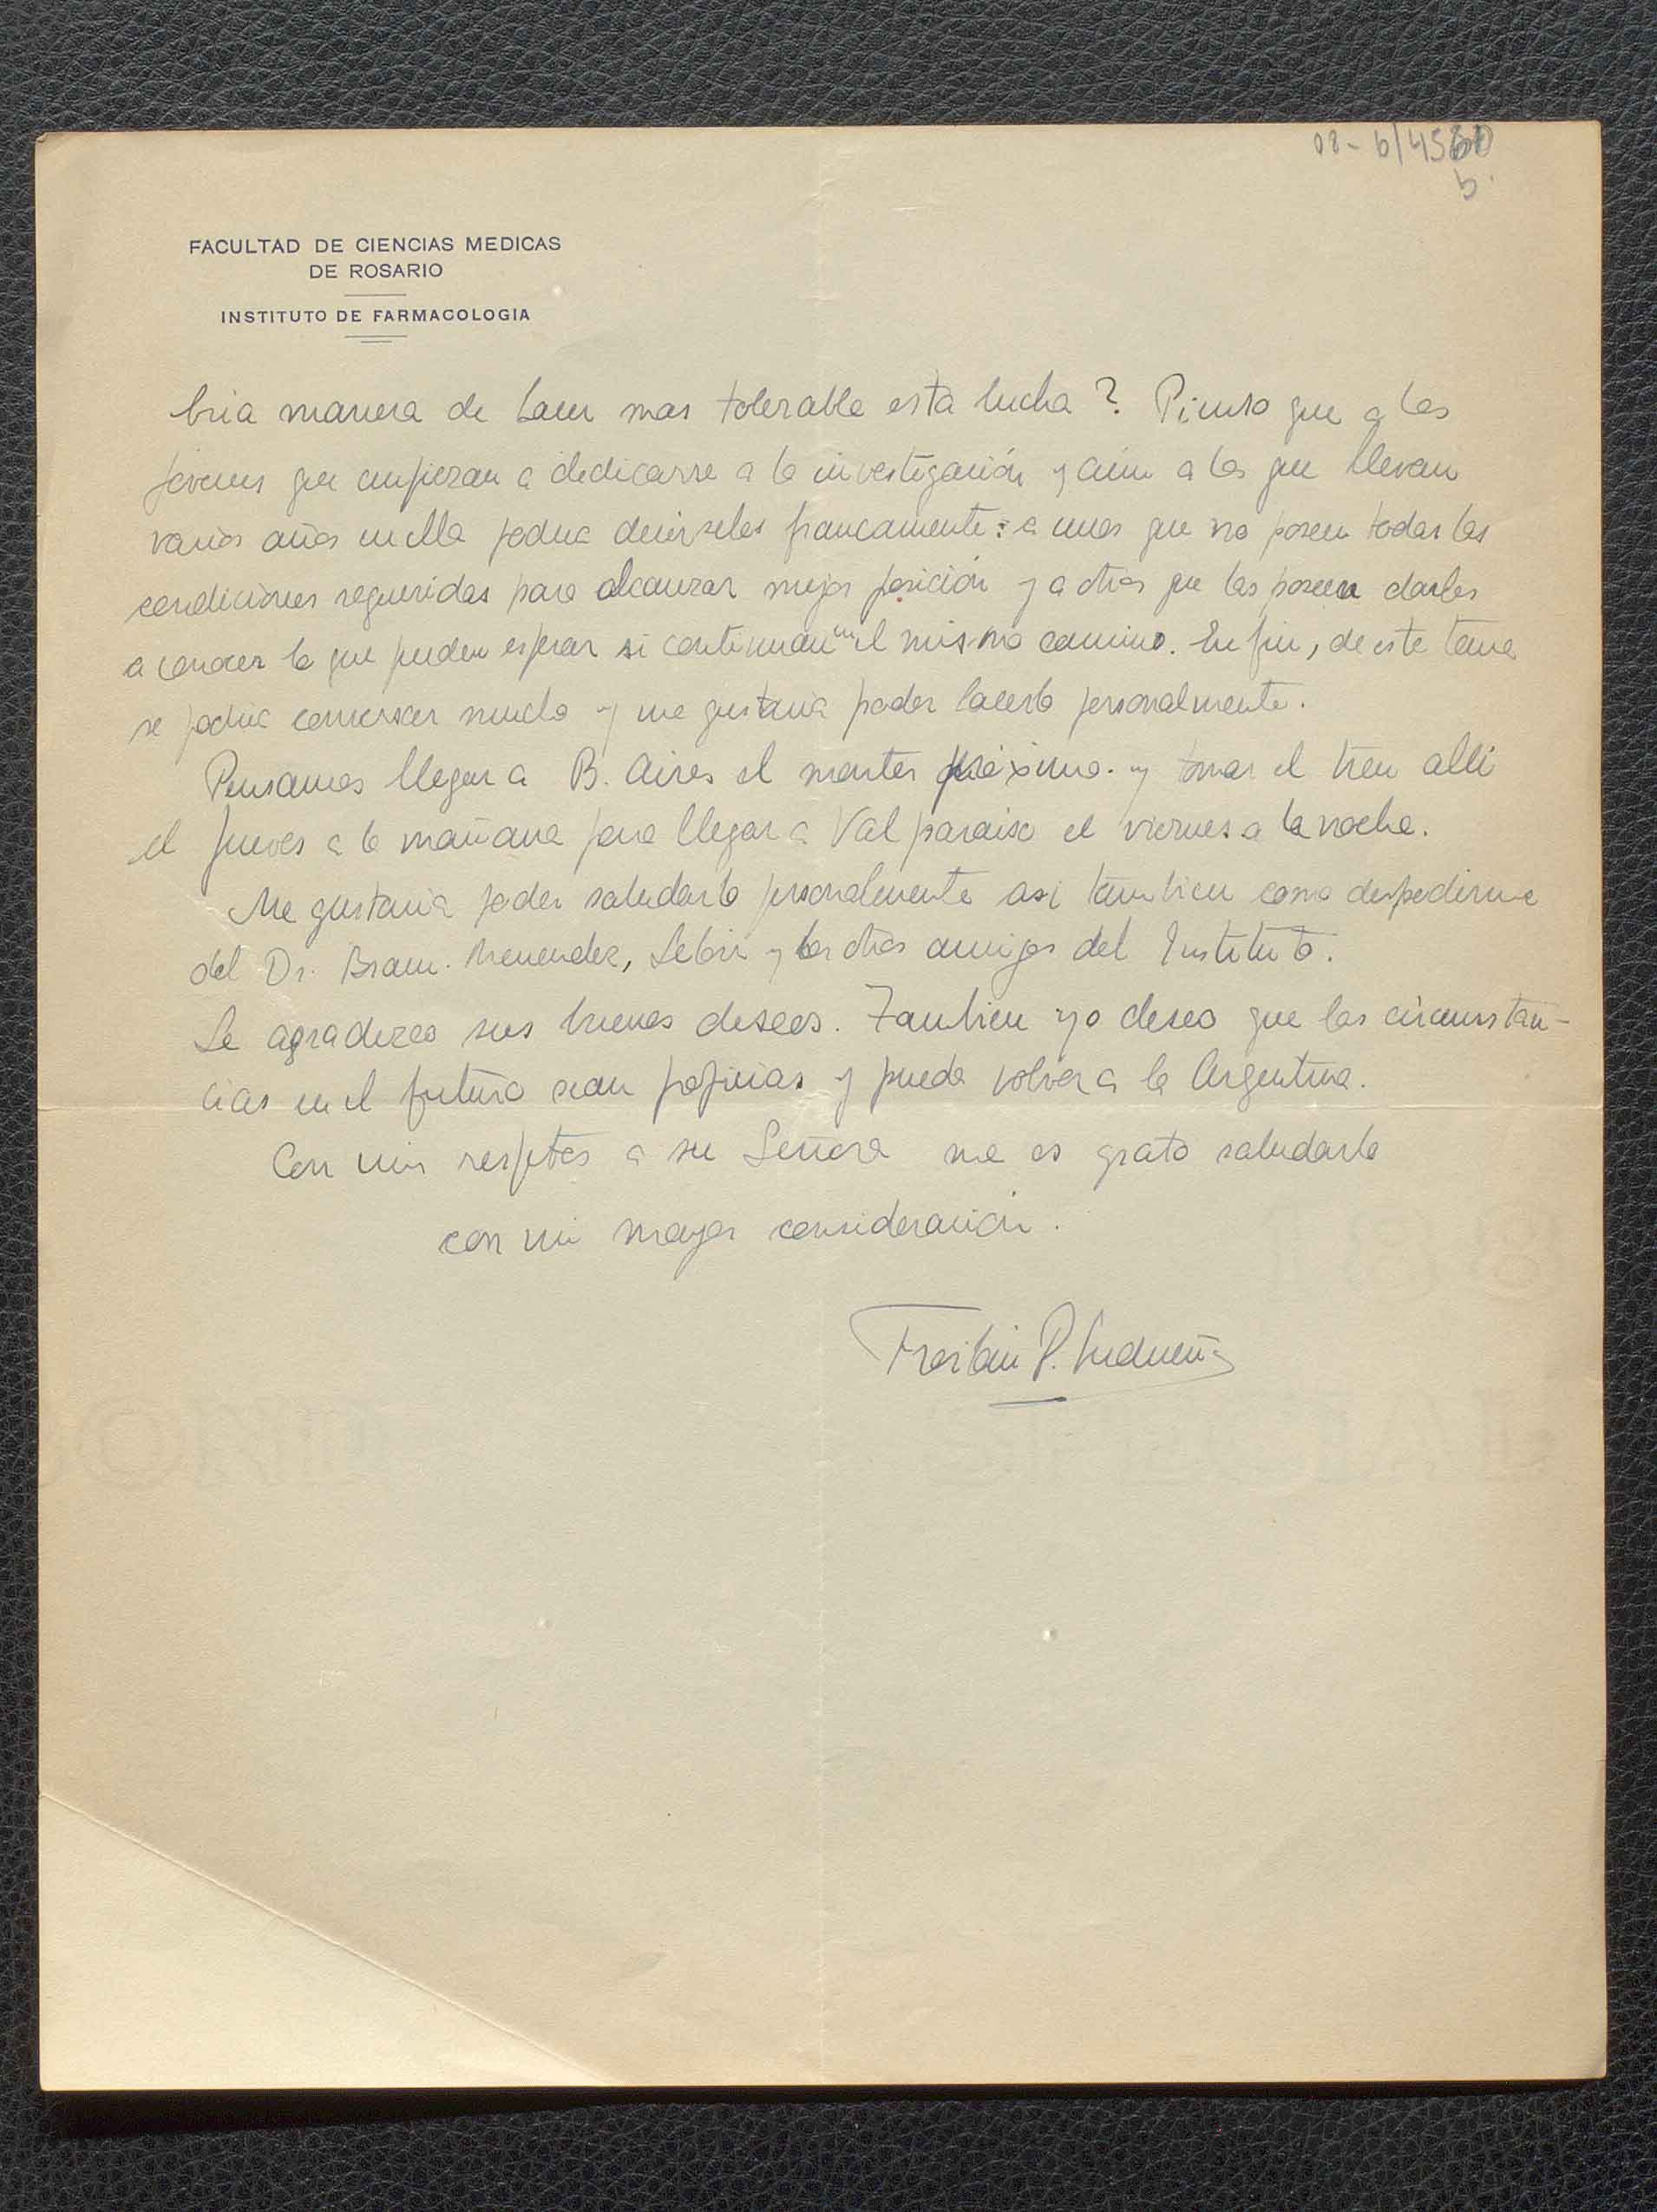 08-6/4560
b.
FACULTAD DE CIENCIAS MEDICAS
DE ROSARIO
INSTITUTO DE FARMACOLOGIA
bria manera de hacer mas tolerable esta lucha? Pienso que a los
jóvenes que empiezan a dedicarse a la investigación y aún a los que llevan
varios años en ella podria decirseles francamente: a unos que no poseen todas las
condiciones requeridas para alcanzar mejor posición y a otros que las poseen darles
a conocer lo que pueden esperar si continuan en el mismo camino. En fin, de este tema
se podria conversar mucho y me gustaria poder hacerlo personalmente.
Pensamos llegar a B. Aires el martes próximo. y tomar el tren alli
el jueves a la mañana para llegar a Valparaiso el viernes a la noche.
Me gustaria poder saludarlo personalmente asi tambien como despedirme
del Dr. Braun. Menendez, y los otros amigos del Instituto.
Le agradezco sus buenos deseos. Tambien yo deseo que las circunstan-
cias en el futuro sean propicias y pueda volver a la Argentina.
Con mis respetos a su Señora me es grato saludarlo
con mi mayor consideración.
Froilán P. Ludueña